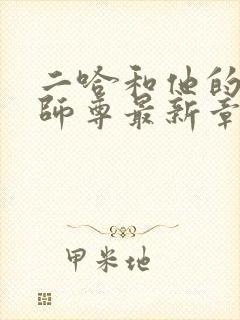 二哈和他的
师尊最新章
甲米地